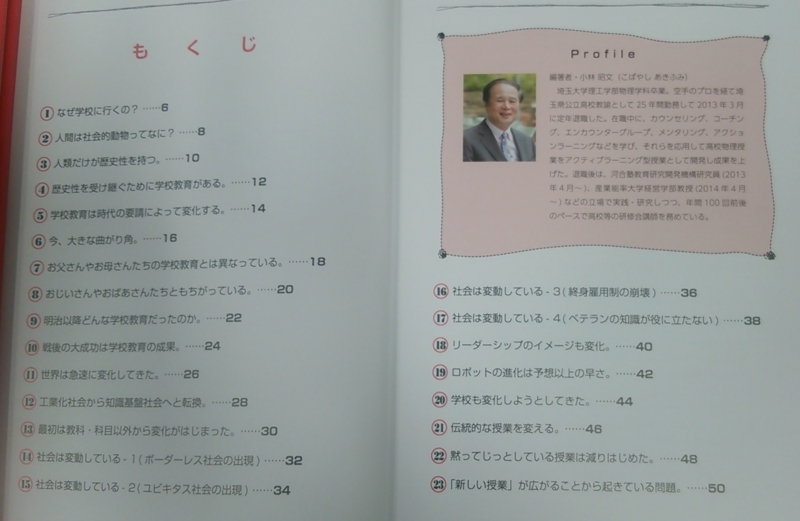 もくじ
① なぜ学校に行くの？……6
② 人間は社会的動物ってなに？……8
③ 人類だけが歴史性を持つ。……10
④ 歴史性を受け継ぐために学校教育がある。……12
⑤ 学校教育は時代の要請によって変化する。……14
⑥ 今、大きな曲がり角。……16
⑦ お父さんやお母さんたちの学校教育とは異なっている。……18
⑧ おじいさんやおばあさんたちともちがっている。……20
⑨ 明治以降どんな学校教育だったのか。……22
⑩ 戦後の大成功は学校教育の成果。……24
⑪ 世界は急速に変化してきた。……26
⑫ 工業化社会から知識基盤社会へと転換。……28
⑬ 最初は教科・科目以外から変化がはじまった。……30
⑭ 社会は変動している - 1(ボーダーレス社会の出現)……32
⑮ 社会は変動している - 2(ユビキタス社会の出現)……34
Profile
編著者・小林 昭文（こばやし あきふみ）
埼玉大学理工学部物理学科卒業。空手のプロを経て埼
玉県公立高校教諭として25年間勤務して2013年3月
に定年退職した。在職中に、カウンセリング、コーチン
グ、エンカウンターグループ、メンタリング、アクショ
ンラーニングなどを学び、それらを応用して高校物理授
業をアクティブラーニング型授業として開発し成果を上
げた。退職後は、河合塾教育研究開発機構研究員(2013
年4月～)、産業能率大学経営学部教授(2014年4月
～)などの立場で実践・研究しつつ、年間100回前後
のペースで高校等の研修会講師を務めている。
⑯ 社会は変動している - 3(終身雇用制の崩壊)……36
⑰ 社会は変動している - 4(ベテランの知識が役に立たない)……38
⑱ リーダーシップのイメージも変化。……40
⑲ ロボットの進化は予想以上の早さ。……42
⑳ 学校も変化しようとしてきた。……44
㉑ 伝統的な授業を変える。……46
㉒ 黙ってじっとしている授業は減りはじめた。……48
㉓ 「新しい授業」が広がることから起きている問題。……50